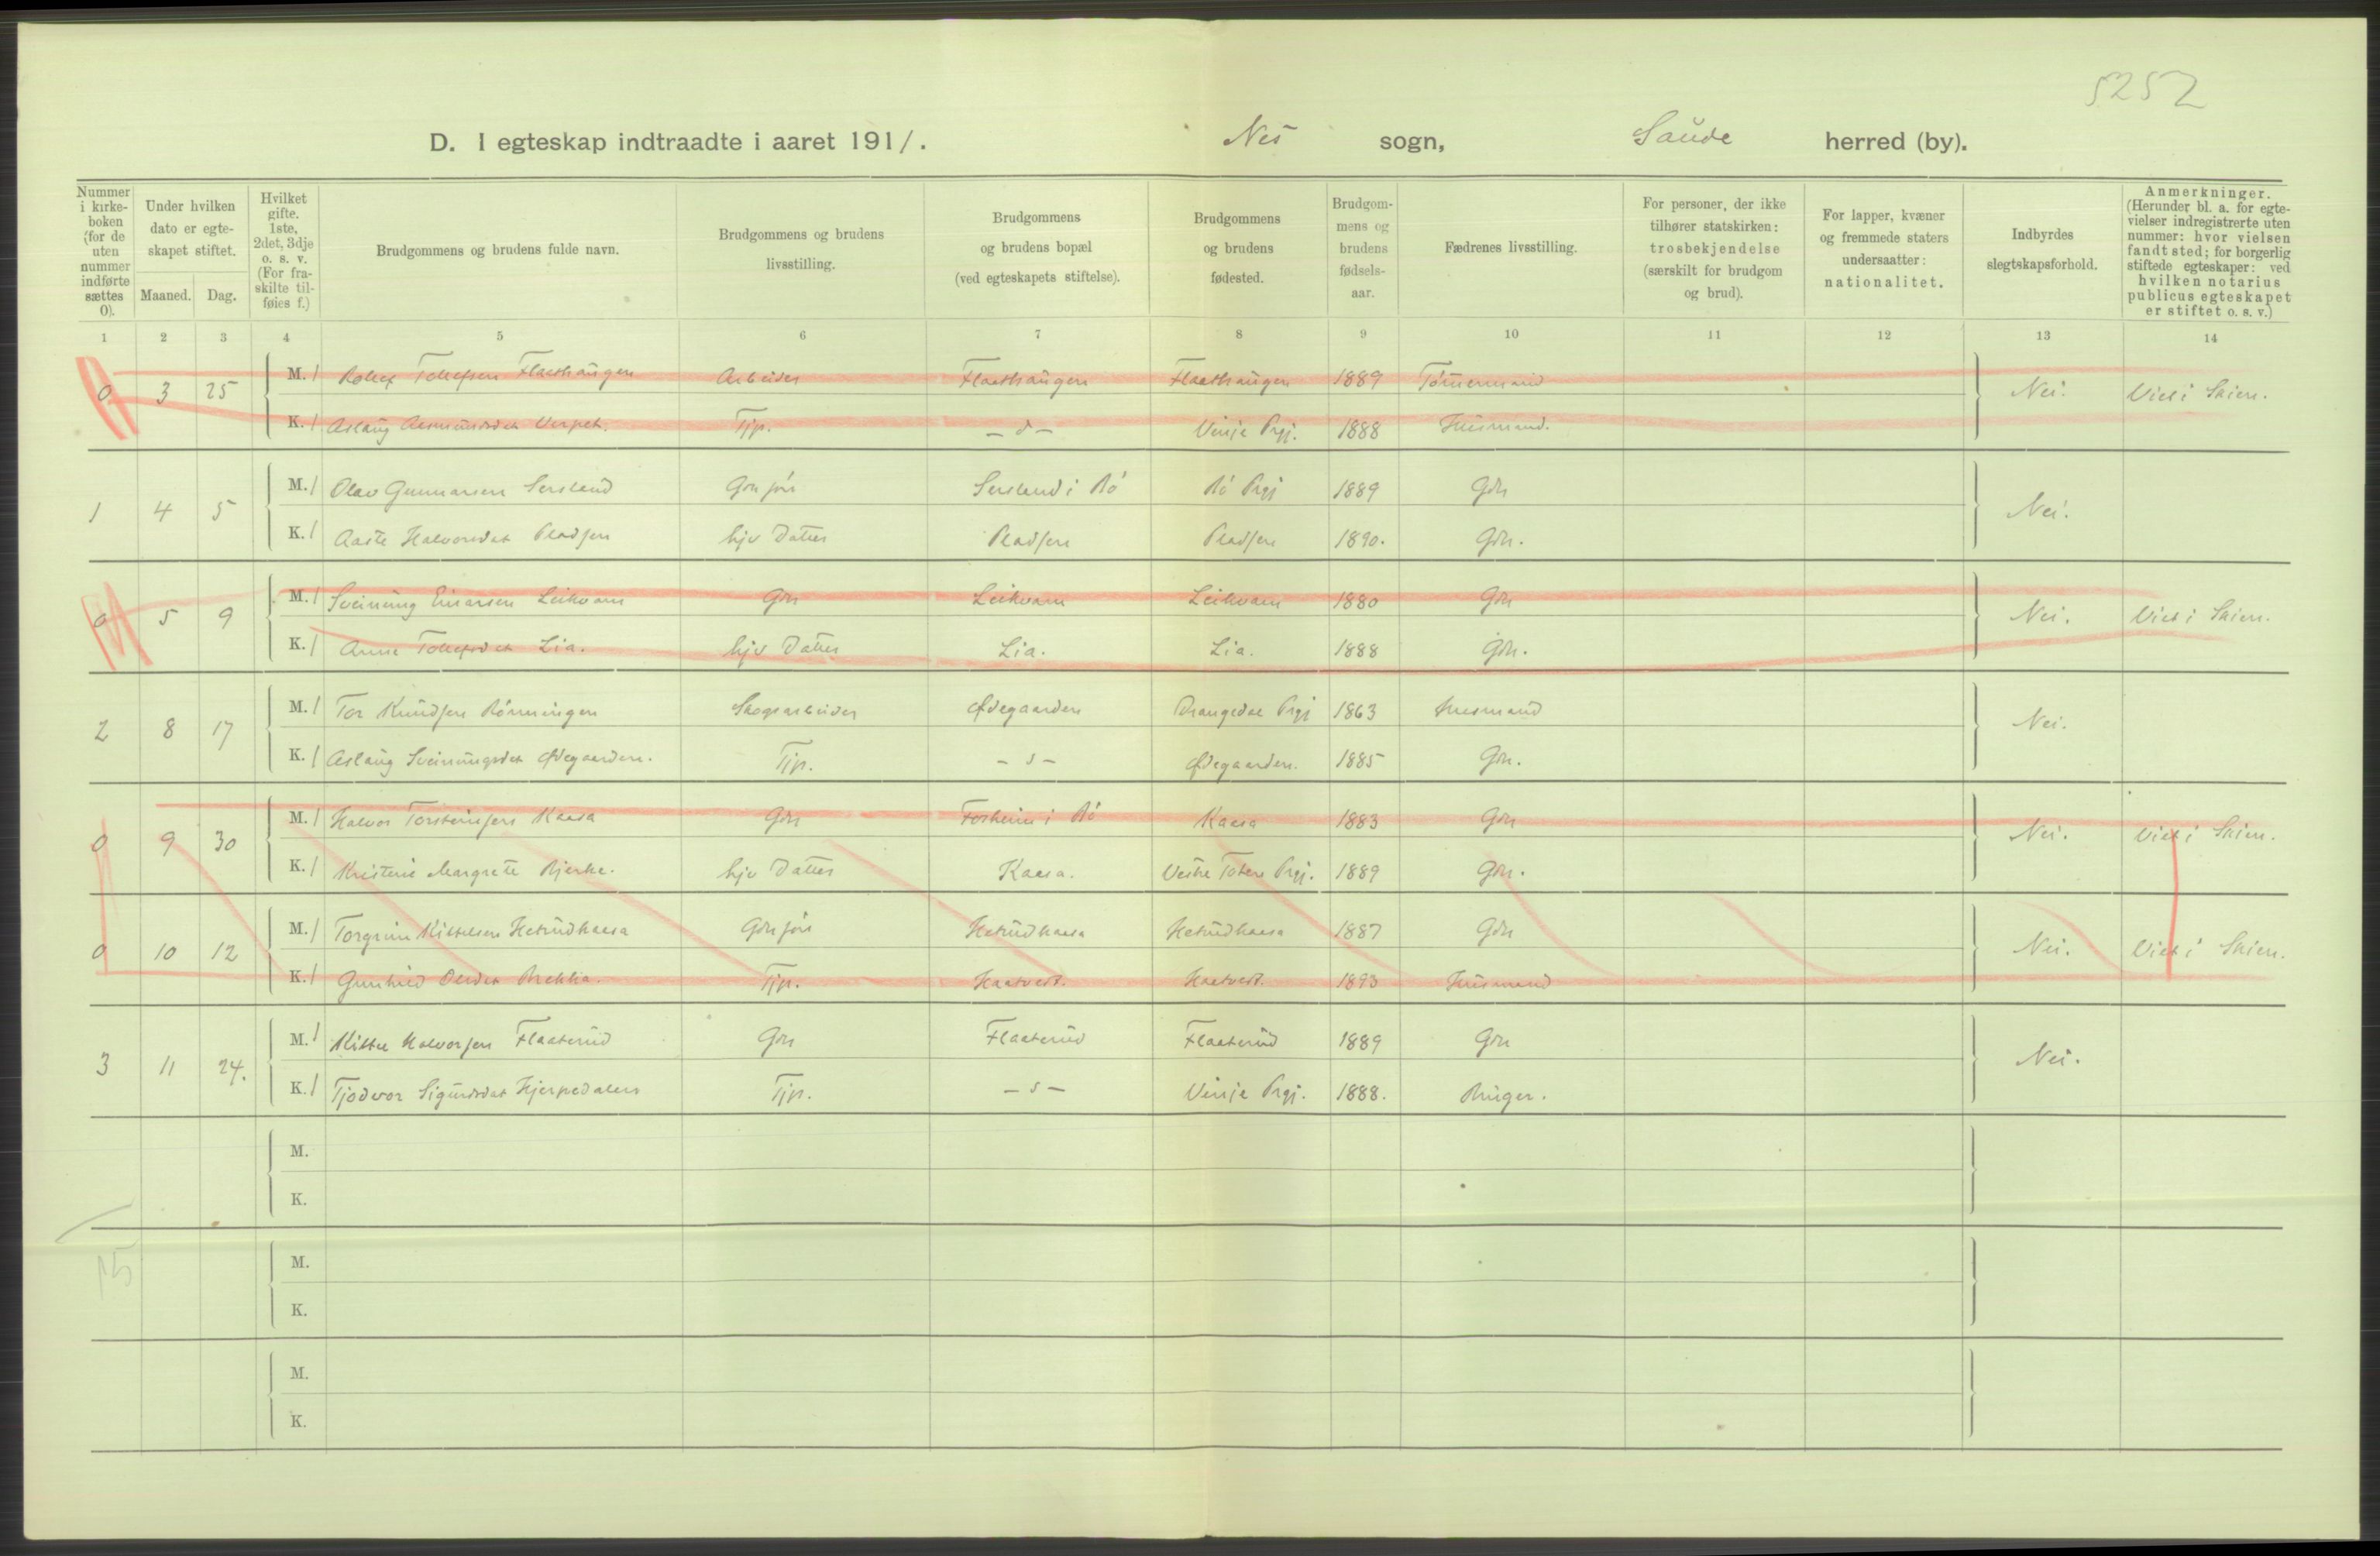 5252
D. I egteskap indtraadte i aaret 1911. Nes sogn, Saude herred (by).
Nummer i kirke-boken (for de uten nummer indførte sættes 0).
Under hvilken dato er egte-skapet stiftet.
Maaned. Dag.
Hvilket gifte. 1ste, 2det, 3dje o. s. v. (For fra-skilte til-føies f.)
Brudgommens og brudens fulde navn.
Brudgommens og brudens livsstilling.
Brudgommens og brudens bopæl (ved egteskapets stiftelse).
Brudgommens og brudens fødested.
Brudgom-mens og brudens fødsels-aar.
Fædrenes livsstilling.
For personer, der ikke tilhører statskirken: trosbekjendelse (særskilt for brudgom og brud).
For lapper, kvæner og fremmede staters undersaatter: nationalitet.
Indbyrdes slegtskapsforhold.
Anmerkninger. (Herunder bl. a. for egte-vielser indregistrerte uten nummer: hvor vielsen fandt sted; for borgerlig stiftede egteskaper: ved hvilken notarius publicus egteskapet er stiftet o. s. v.)
1 2 3 4 5 6 7 8 9 10 11 12 13 14
0 3 25 M. 1 Rollef Tollefsen Flaathaugen Arbeider Flaathaugen Flaathaugen 1889 Tømmermand Nei. Viet i Skien.
K. 1 Aslaug Aasmundsdat Verpet. Tjp. – d – Vinje Prgj. 1888 Husmand.
1 4 5 M. 1 Olav Gunnarsen Sersland Gbr søn Sersland i Bø Bø Prgj 1889 Gbr Nei.
K. 1 Aaste Halvorsdat Pladsen hjv Datter Pladsen Pladsen 1890. Gbr.
0 5 9 M. 1 Sveinung Einarsen Leikvam Gbr Leikvam Leikvam 1880 Gbr Nei. Viet i Skien.
K. 1 Anne Tollefsdat Lia. hjv Datter Lia. Lia. 1888 Gbr.
2 8 17 M. 1 Tor Knudsen Rønningen Skogsarbeider Ødegaarden Drangedal Prgj 1863 Husmand Nei.
K. 1 Aslaug Sveinungsdat Ødegaarden. Tjp. – d – Ødegaarden. 1885 Gbr.
0 9 30 M. 1 Halvor Torsteinsen Kaasa Gbr Forheim i Bø Kaasa 1883 Gbr Nei. Viet i Skien.
K. 1 Kristine Margrete Bjerke. hjv Datter Kaasa. Vestre Toten Prgj. 1889 Gbr.
0 10 12 M. 1 Torgrim Kittelsen Hetvedkaasa Gbr søn Hetvedkaasa Hetvedkaasa 1887 Gbr Nei. Viet i Skien.
K. 1 Gunhild Olsdat Brekka. Tjp. Haatvedt. Haatvedt. 1893 Husmand
3 11 24. M. 1 Kittel Halvorsen Flaaterud Gbr Flaaterud Flaaterud 1889 Gbr Nei.
K. 1 Tjodvor Sigurdsdat Hjerpedalen Tjp. – d – Vinje Prgj. 1888. Bruger.
M.
K.
M.
K.
M.
K.